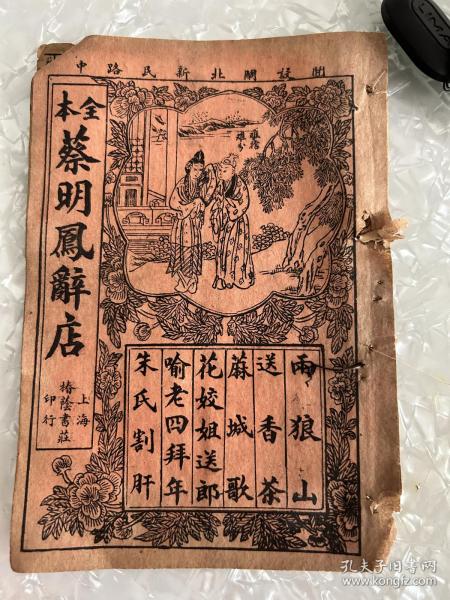 開設閘北新民路中
全本
蔡明鳳辭店
上海
椿蔭書莊
印行
難捨
難分
雨狼山
送香茶
蔴城歌
花姣姐送郎
喻老四拜年
朱氏割肝
孔夫子旧书网
www.kongfz.com